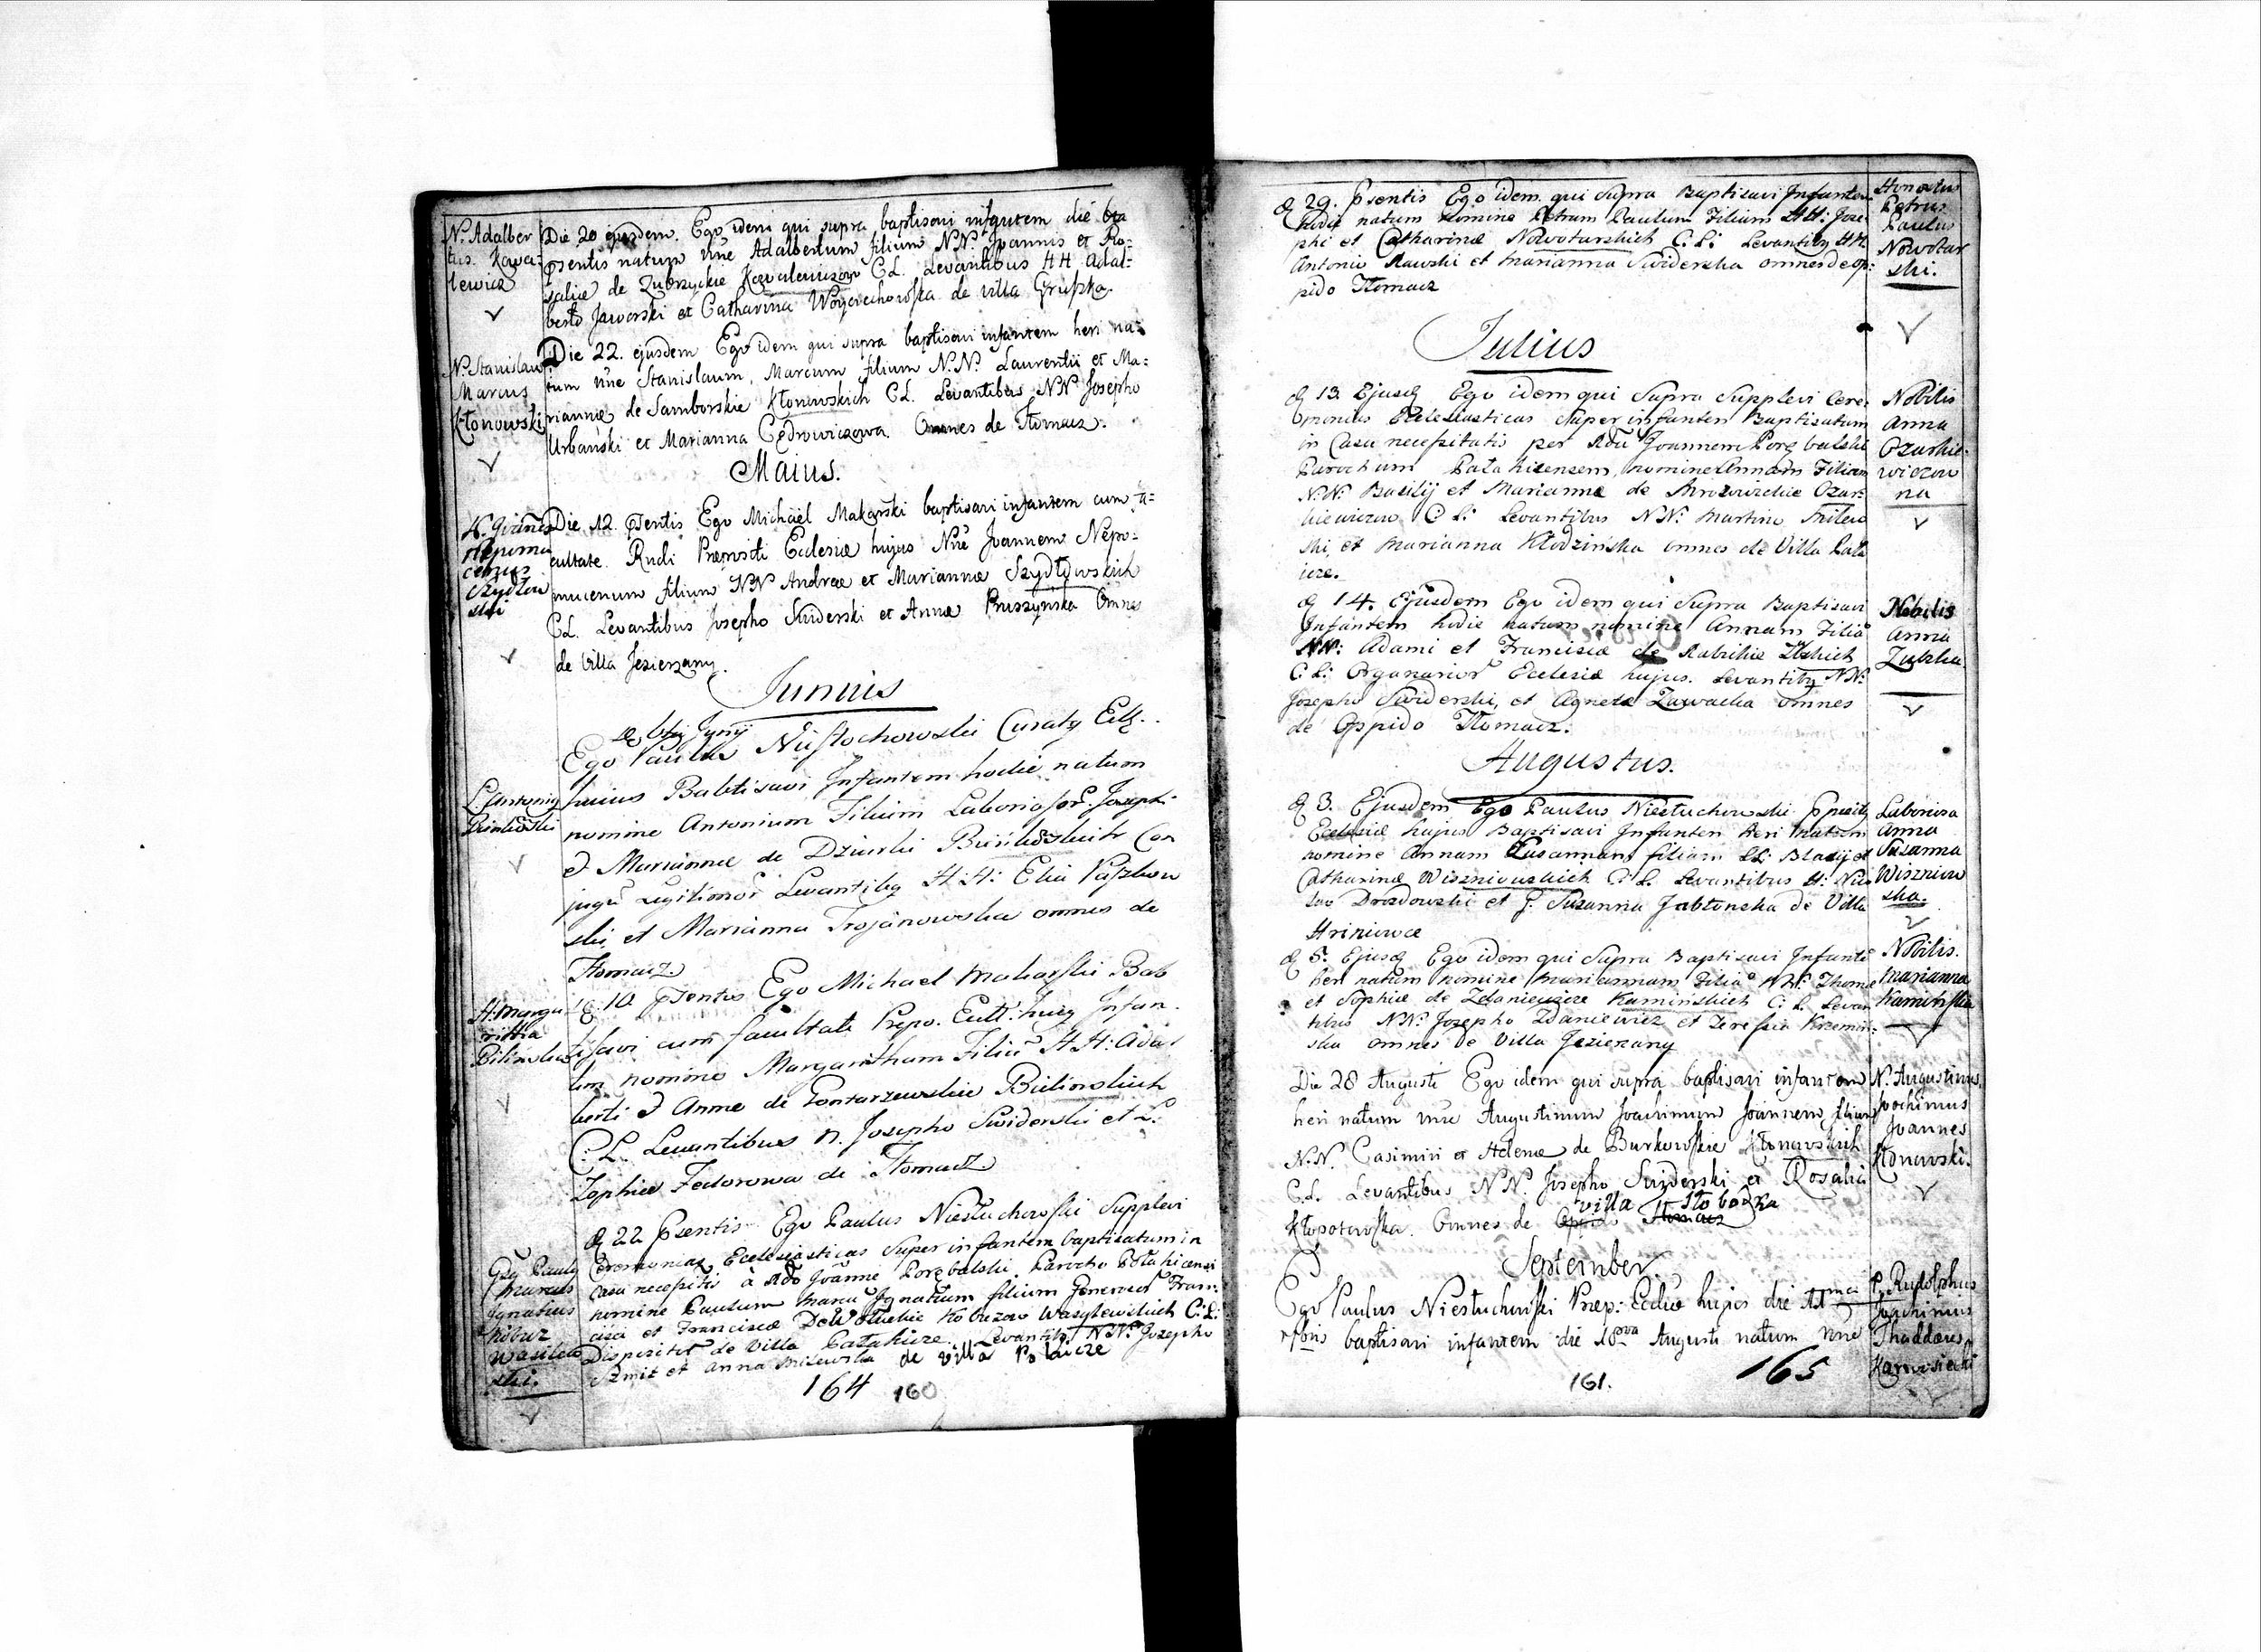 N. Adalber
tus. Kowa-
lewicz
Die 20 ejusdem. Ego idem qui supra baptisavi infantem die
psentis natum nne Adalbertum filium N.N. Joannis et Ro-
saliæ de Zubrzyckie Kowalewiczow C.L. Levantibus H.H. Adal-
berto Jaworski et Catharina Woyciechowska de villa Gruszka.
N. Stanislaus
Marcus
Kłonowski
Die 22. ejusdem Ego idem qui supra baptisavi infantem heri na-
tum nne Stanislaum, Marcum filium N.N. Laurentii et Ma-
riannæ de Samborskie Kłonowskich C.L. Levantibus N.N. Josepho
Urbański et Marianna Cedrowiczowa. Omnes de Tłomacz.
Maius.
N. Joannes
Nepomu
cenus
Szydłow
ski
Die 12. psentis Ego Michaël Makarski baptisavi infantem cum fa-
cultate Rndi Præpositi Ecclesiæ hujus Nne Joannem Nepo-
mucenum filium N.N. Andreæ et Mariannæ Szydłowskich
C.L. Levantibus Josepho Swiderski et Anna Pruszynska Omnes
de Villa Jezierzany.
Junius
Junij
Ego Paulus Niestochowski Curatg Eccl.
L. Antonig
huius Babtisavi Infantem hodie natum
nomine Antonium Filium Laboriosor. Josephi
et Mariannæ de Dziurki Con
jugu Legitimor Levantibg H.H: Elia
ski, et Marianna Trojanowska omnes de
Tłomacz.
H. Marga
ritta
Bilińska
10 psentis Ego Michael Makarski Bab
tisavi cum facultate Prepo. Eccl. huig Infan.
tem nomine Margaritham Filiã H.H: Adal
berti et Annæ de Gontarzewskie Bielinskich
C.L. Levantibus N. Josepho Swiderski et L.
Zophia Fedorowa de Tłomacz
Paulg
Marcus
Ignatius
Wasilew
ski.
D 22 Psentis Ego Paulus Niestuchowski Supplevi
Ceremonias Ecclesiasticas Super infantem baptisatum in
Casu necessitis à Rdo Joanne Porębalski Parocho Pałahicensi
nomine Paulum Marcũ Ignatium filium Generosor Fran-
cisci et Franciscæ De Wasylewskich C:L:
Dispositor de Villa Pałahicze. Levantibg N.N. Josepho
Szmit et Anna de villa Pałaicze
164 160
D 29. Psentis Ego idem qui Supra Baptisavi Infantem
hodie natum Nomine Petrum Paulum Filium H.H: Jose-
phi et Catharinæ Nowotarskich C:L: Levantibg H.H.
Antonio Rawski et Marianna Swiderska omnes de Op-
pido Tłomacz
Honestus
Petrus
Paulus
Nowotar
ski.
Julius
D 13. Ejusd Ego idem qui Supra Supplevi Cere-
monias Ecclesiasticas Super infantem Baptisatum
in Casu necessitatis per Rdũ Joannem Porębalski
Parochum Pałahicensem, nomine Annam Filiam
N.N: Basilij et Mariannæ de Ozar-
kiewiczow C L: Levantibus N.N: Martino
ski, et Marianna Kłodzińska omnes de Villa Pała
icze.
Nobilis
Anna
Ozarkie-
wiczow
na
D 14. Ejusdem Ego idem qui Supra Baptisavi
Infantem hodie natum nomine Annam Filiã
N.N: Adami et Franciscæ de
C.L: Organarior Ecclesiæ hujus. Levantibg N.N:
Josepho Swiderski, et Agneta Zawacka omnes
de Oppido Tłomacz.
Nobilis
Anna
Augustus.
D 3. Ejusdem Ego Paulus Niestuchowski Pposity
Ecclesiæ hujus Baptisavi Infantem Heri Natum
nomine Annam Susannam filiam LL: Blasij et
Catharinæ Wiszniowskich C.L. Levantibus H: Nico
lao Drozdowski et G. Susanna Jabłonska de Villa
Hriniowce
Laboriosa
Anna
Susanna
Wiszniow
ska.
D 5. Ejusd Ego idem qui Supra Baptisavi Infantẽ
heri natum nomine Mariannam Filiã N.N: Thomæ
et Sophiæ de Zdaniewicze Kaminskich C: L. Levan
tibus N.N: Josepho Zdaniewicz et Teressia Krzemiń-
ska omnes de Villa Jezierzany
Nobilis.
Marianna
Kamińska
Die 28 Augusti Ego idem qui supra baptisavi infantem
heri natum nne Augustinum Joachimum Joannem, filium
N.N. Casimiri et Helenæ de Burkowskie Kłonowskich
C.L. Levantibus N.N. Josepho Swiderski et Rosalia
villa Słobodka
Kłopotowska. Omnes de Oppido Tłomacz
N. Augustinus.
Joachimus
Joannes
Kłonowski.
September
Ego Paulus Niestuchowski Præp: Eccliæ hujus die 11ma
7bris baptisavi infantem die 18va Augusti natum nne
Rudolphus
Joachimus
Thaddæus
161. 165